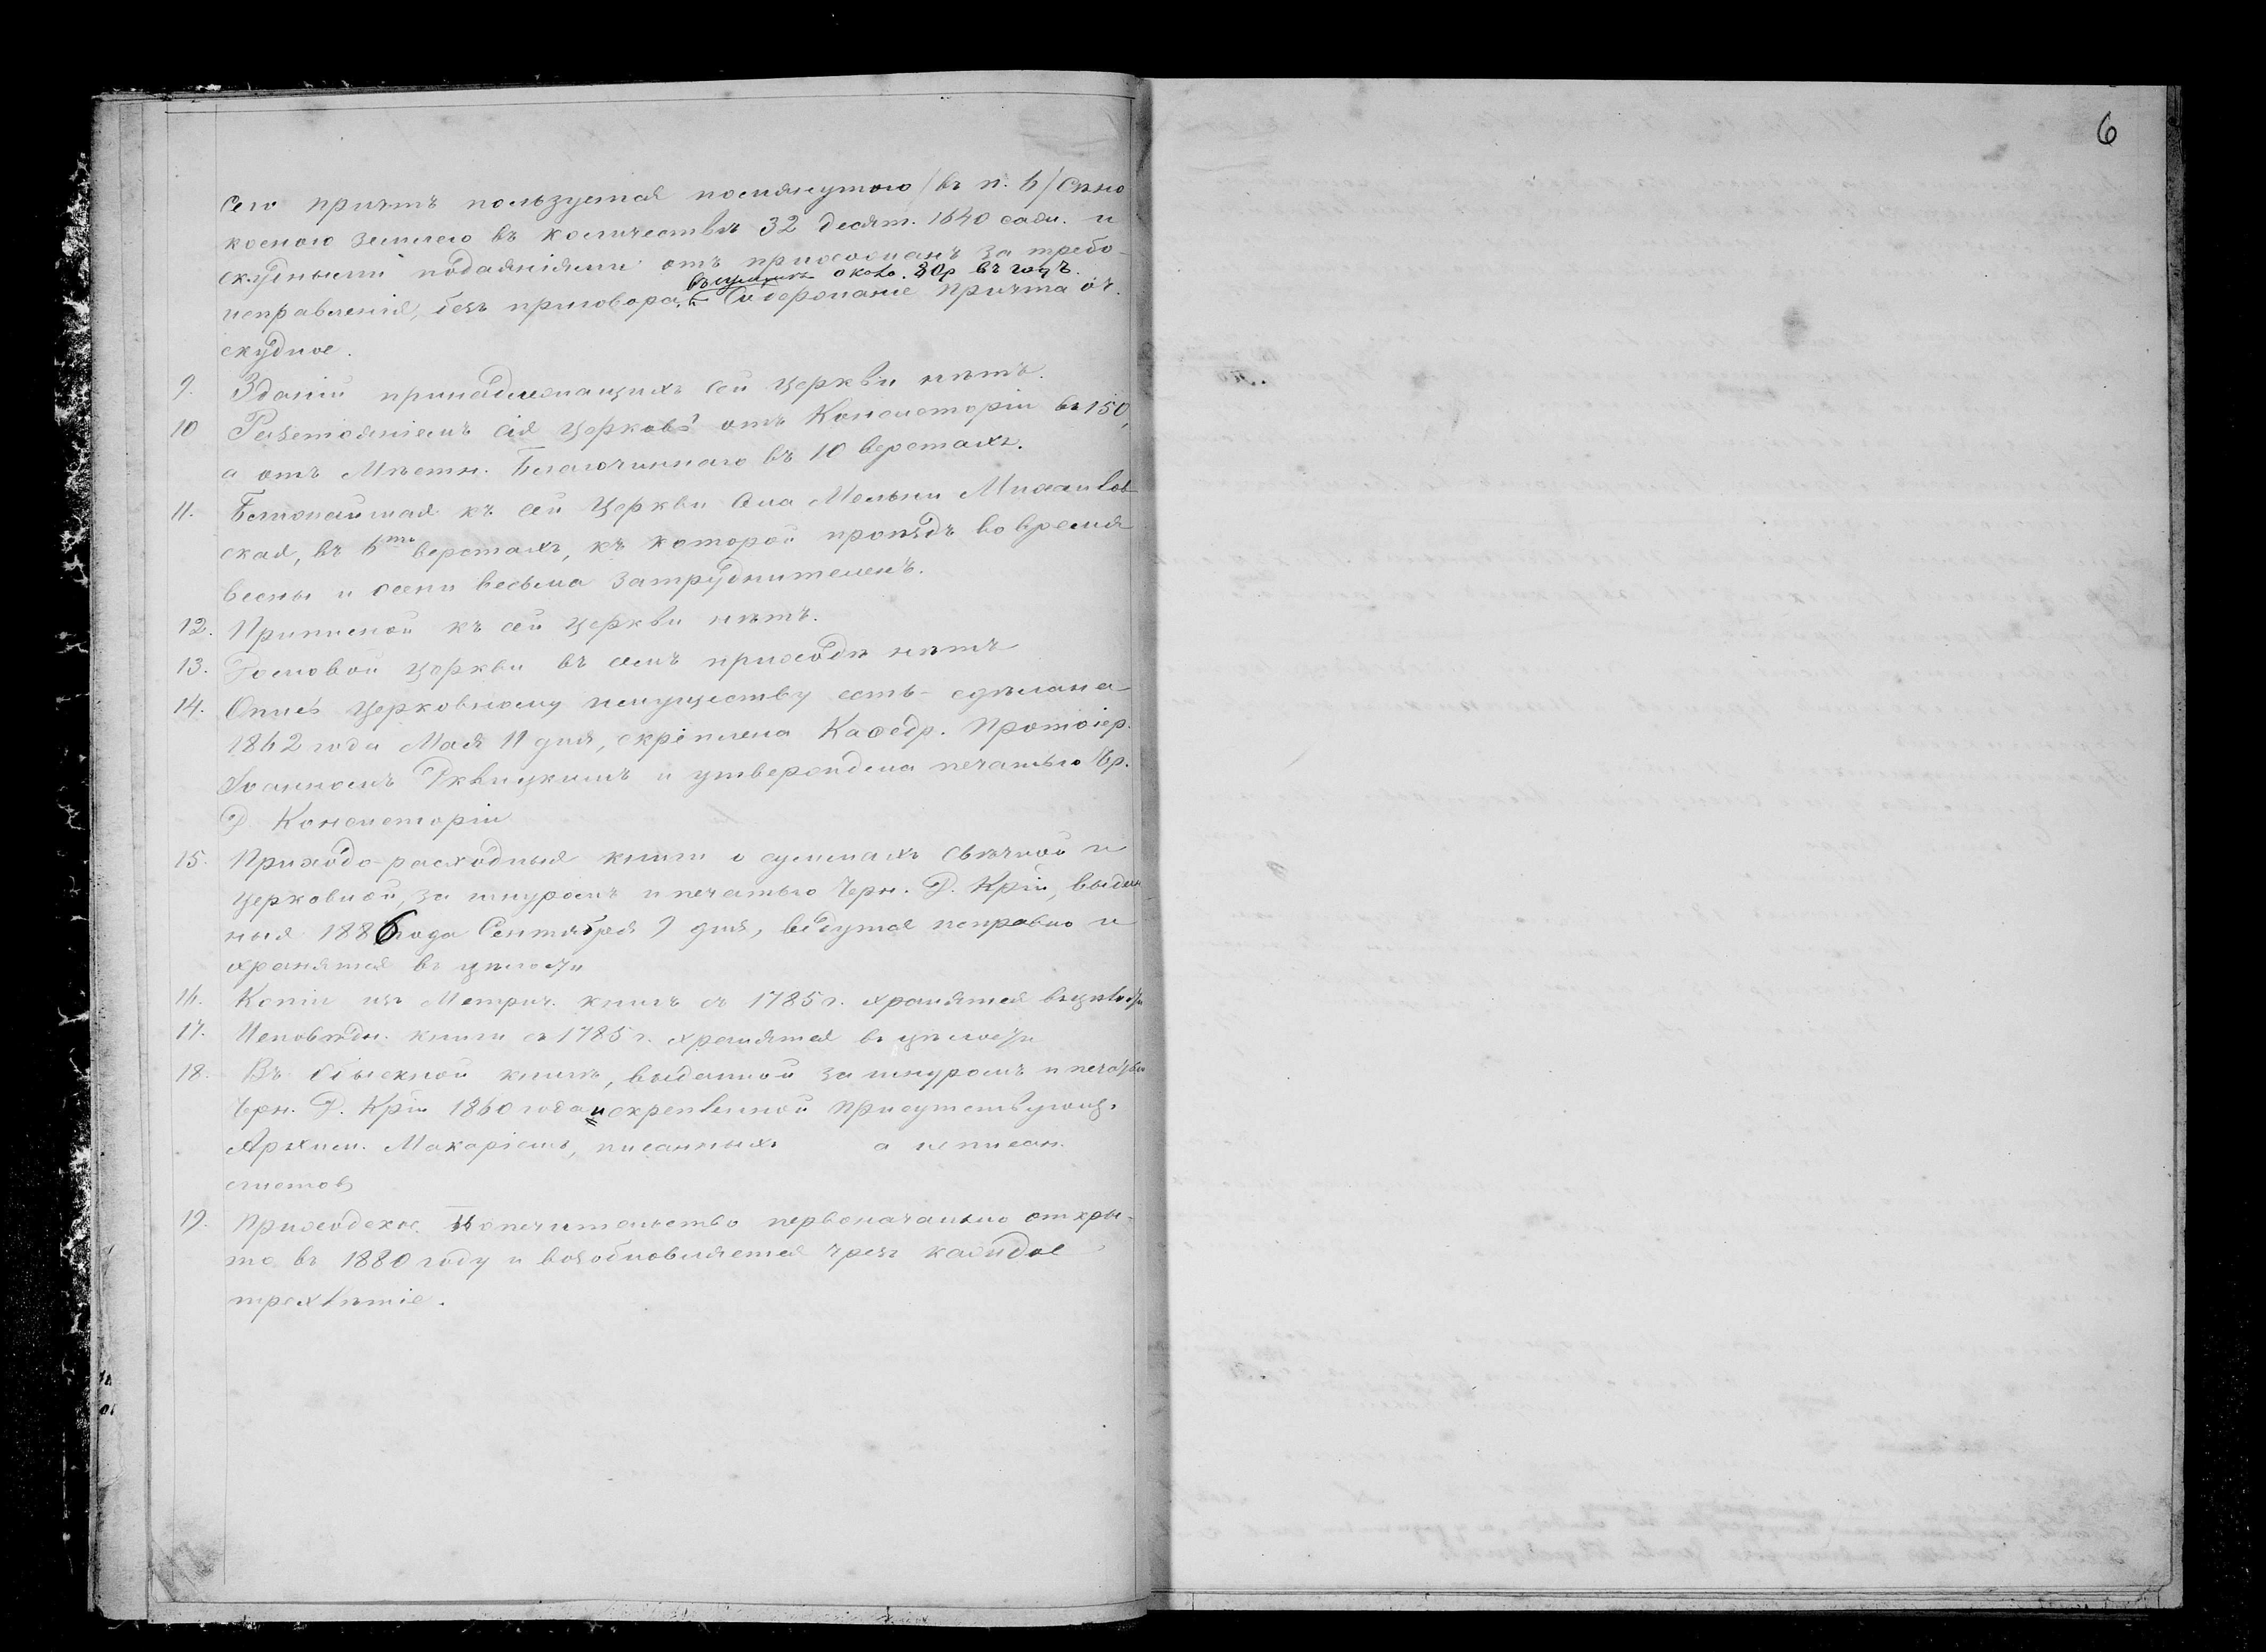 6
сего причтъ пользуется помянутою /въ п. 6/ сѣно
косною землею въ количествѣ 32 десят. 1640 саж. и
скудными подаяніями отъ прихожанъ за требо-
въ суммѣ около 30р въ годъ.
исправленія, безъ приговора, и Содержаніе причта оч.
скудное.
9. Зданій принадлежащихъ сей церкви нѣтъ.
10 Разстояніемъ сія церковь отъ Консисторіи въ 150,
а отъ Мѣстн. Благочиннаго въ 10 верстахъ.
11. Ближайшая къ сей церкви села Мельни Михайлов
ская, въ 6ти верстахъ, къ которой проѣздъ во время
весны и осени весьма затруднителенъ.
12. Приписной къ сей церкви нѣтъ.
13. Домовой церкви въ семъ приходѣ нѣтъ
14. Опись церковному имуществу есть- сдѣлана
1862 года Мая 11 дня, скрѣплена Кафедр. Протоіер.
Іоанномъ и утверждена печатью Чр.
Д Консисторіи
15. Приходо-расходныя книги о суммахъ свѣчной и
церковной, за шнуромъ и печатью Черн. Д. Кріи, выдан
ныя 1886 года Сентября 9 дня, ведутся исправно и
хранятся въ цѣлости
16. Копіи изъ Метрич. книгъ съ 1785 г. хранятся въ цѣлости
17. Исповѣдн. книги съ 1785 г. хранятся въ цѣлости
18. Въ обыскной книгѣ, выданной за шнуромъ и печатью
Черн. Д. Кріи 1860 года и скрепленной присутствующ.
Архим. Макаріемъ, писанныхъ а неписан.
листовъ
19. Приходское Попечительство первоначально откры-
то въ 1880 году и возобновляется чрезъ каждое
трехлѣтіе.